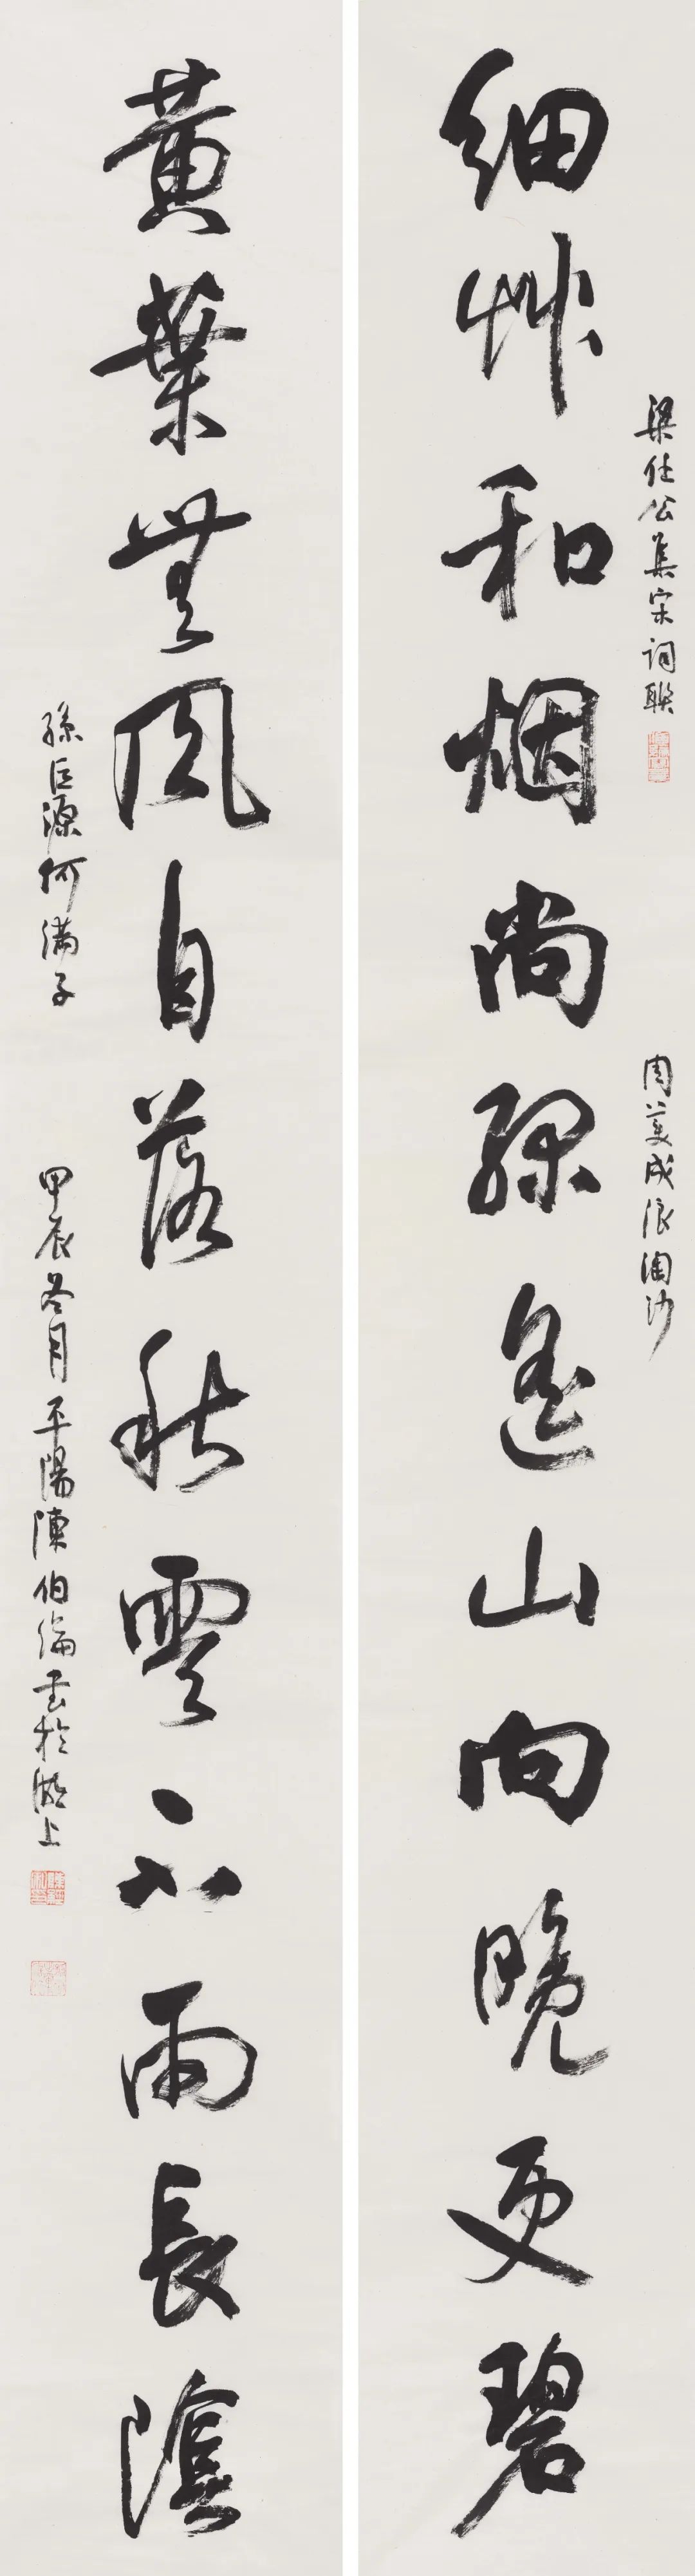 梁任公集宋詞聯
周美成浪淘沙
細艸和烟尚綠遙山向晚更碧
黃葉無風自落秋雲不雨長陰
孫巨源何滿子
甲辰冬月平陽陳伯綸書於湖上